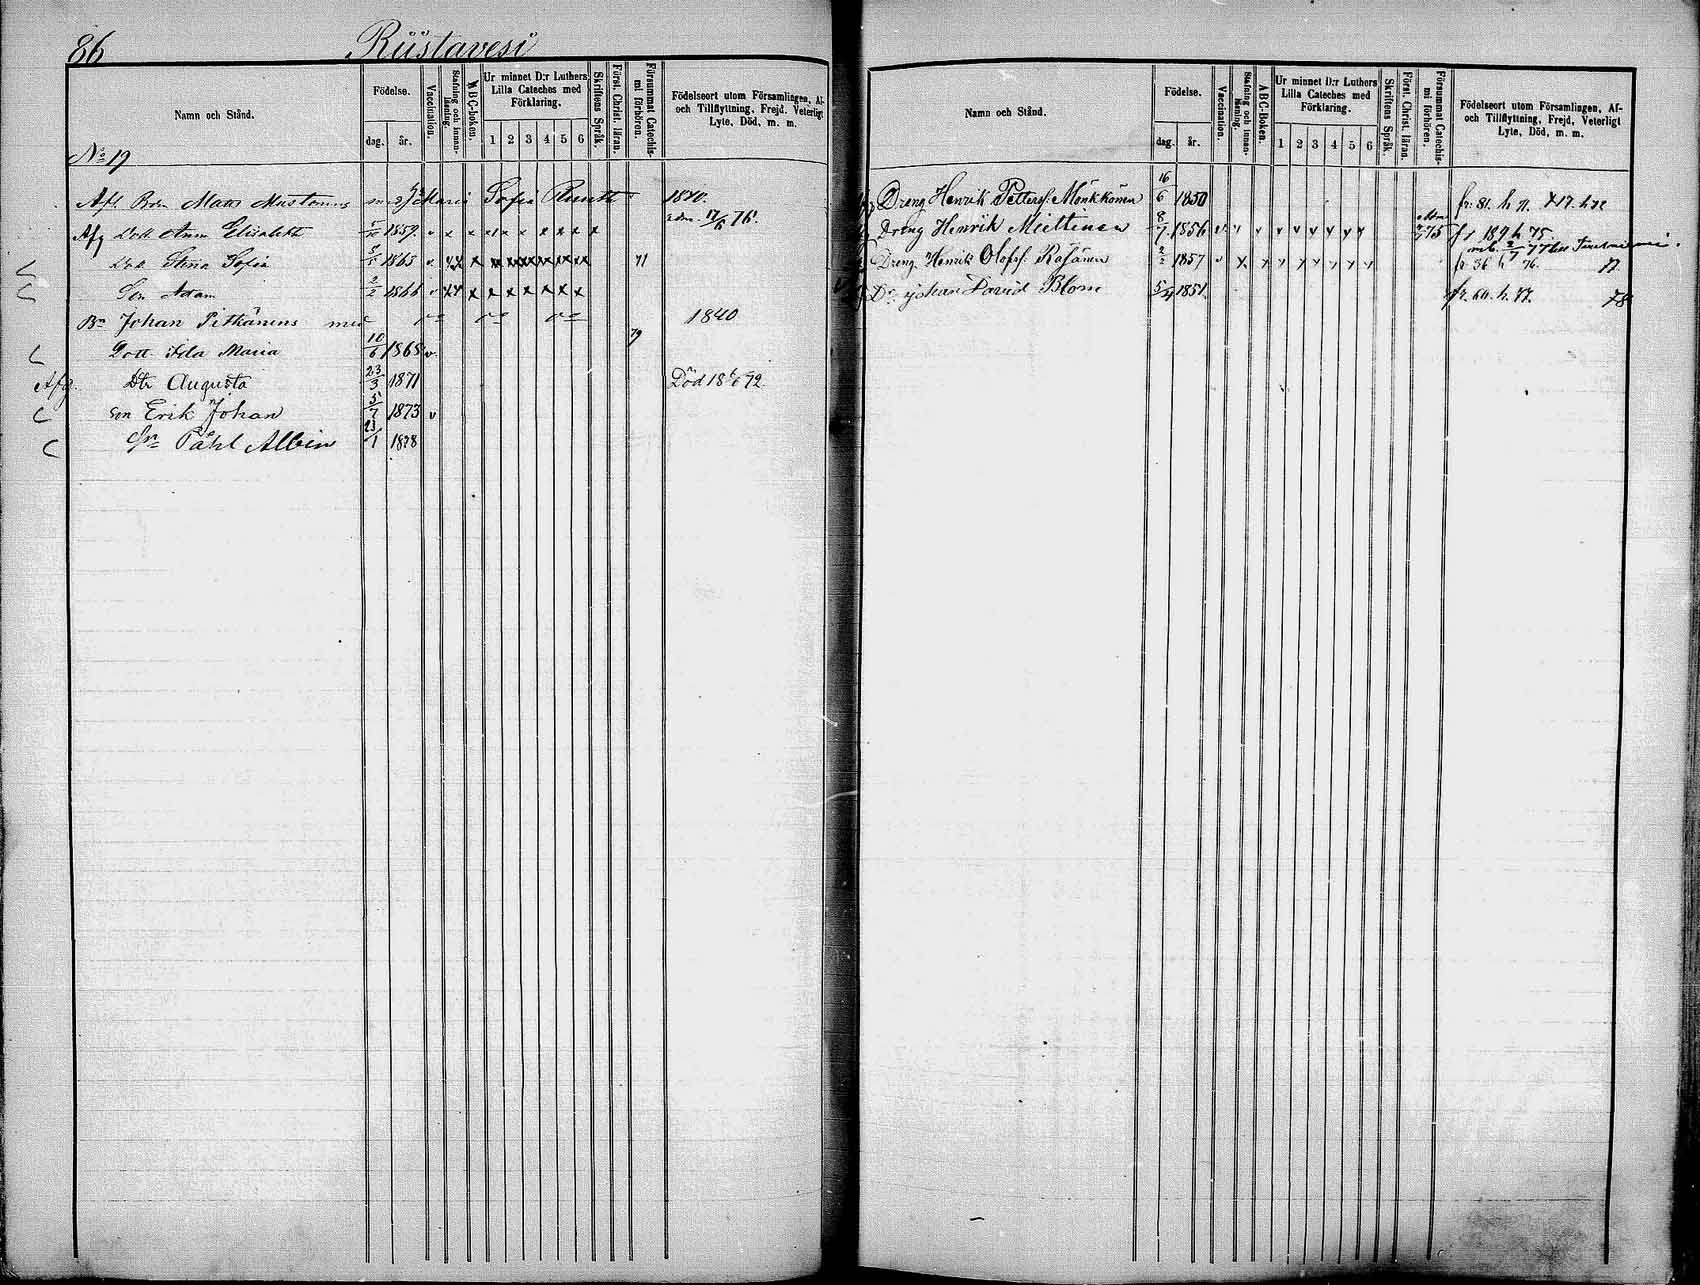 86 Riistavesi
Namn och Stånd.
Födelse.
dag. år.
Vaccination.
Stafning och innan-läsning.
ABC-boken.
Ur minnet D:r Luthers Lilla Cateches med Förklaring.
1 2 3 4 5 6
Skriftens Språk.
Först. Christ. läran.
Försummat Catechis-mi förhören.
Födelseort utom Församlingen, Af- och Tillflyttning, Frejd, Veterligt Lyte, Död, m. m.
No 19
Afl. Matts Mustonens Maria Sofia 1840.
Afg Dott. Anna Elisabeth 5/10 1859. v x x x x x x x x 76.
Dott. Stina Sofia 1863 v. 71
Son Adam 2/2 1866 v x x x x x x x
Bn Johan Pitkänens med 1840
79
Dott. Ida Maria 10/6 1868 v.
Afg. Dtr Augusta 23/3 1871 Död 72
Son Erik Johan 5/7 1873 v
Sn Påhl Albin 23/1 1878
Namn och Stånd.
Födelse.
dag. år.
Vaccination.
Stafning och innan-läsning.
ABC-Boken.
Ur minnet D:r Luthers Lilla Cateches med Förklaring.
1 2 3 4 5 6
Skriftens Språk.
Först. Christ. läran.
Försummat Catechis-mi förhören.
Födelseort utom Församlingen, Af- och Tillflyttning, Frejd, Veterligt Lyte, Död, m. m.
Dreng Henrik Petters. Mönkkönen 16/6 1850 fr. 81. h 71.
Dreng Henrik Miettinen 8/7 1856 v 75 fr 189 h 75.
Dreng Henrik Olofs. Räsänen 2/2 1857 v fr 36 h 76. 77
Dr. Johan David Blom 5/4 1851. fr. 60. h. 77. 78